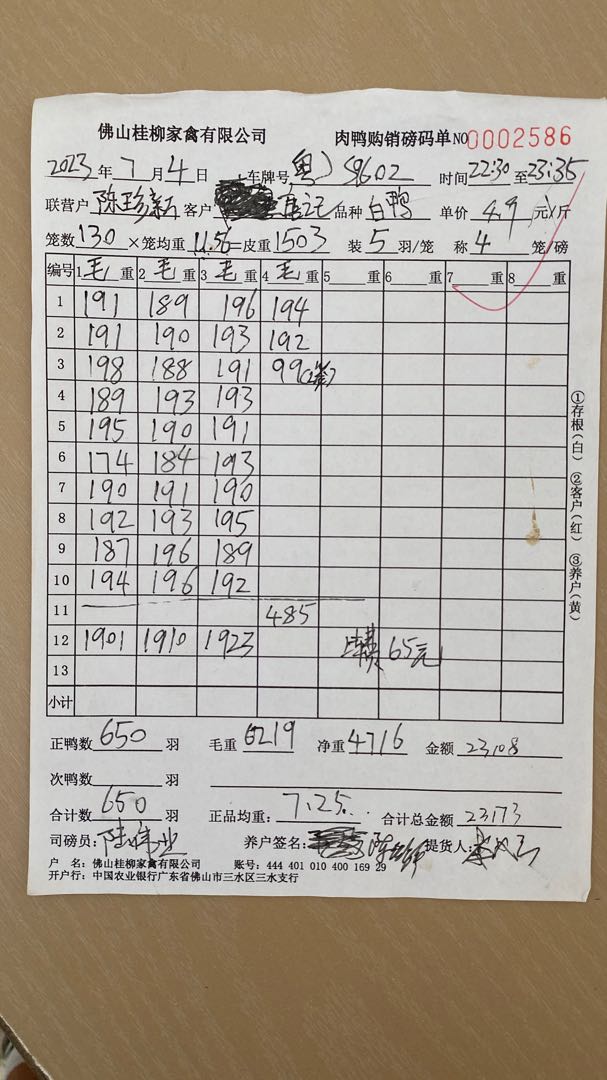 佛山桂柳家禽有限公司 肉鸭购销磅码单 NO 0002586
2023年7月4日 车牌号 粤J S9602 时间 22:30 至 23:35
联营户 客户 品种 白鸭 单价 4.9 元/斤
笼数 130 ×笼均重 11.56 =皮重 1503 装 5 羽/笼 称 4 笼/磅
编号 1 毛 重 2 毛 重 3 毛 重 4 毛 重 5 重 6 重 7 重 8 重
1 191 189 196 194
2 191 190 193 192
3 198 188 191 99(2笼)
4 189 193 193
5 195 190 191
6 174 184 193
7 190 191 190
8 192 193 195
9 187 196 189
10 194 196 192
11 485
12 1901 1910 1923 65元
13
小计
正鸭数 650 羽 毛重 6219 净重 4716 金额 23108
次鸭数 羽
合计数 650 羽 正品均重: 7.25 合计总金额 23173
司磅员: 养户签名: 提货人:
户 名: 佛山桂柳家禽有限公司 账号: 444 401 010 400 169 29
开户行: 中国农业银行广东省佛山市三水区三水支行
①存根(白) ②客户(红) ③养户(黄)